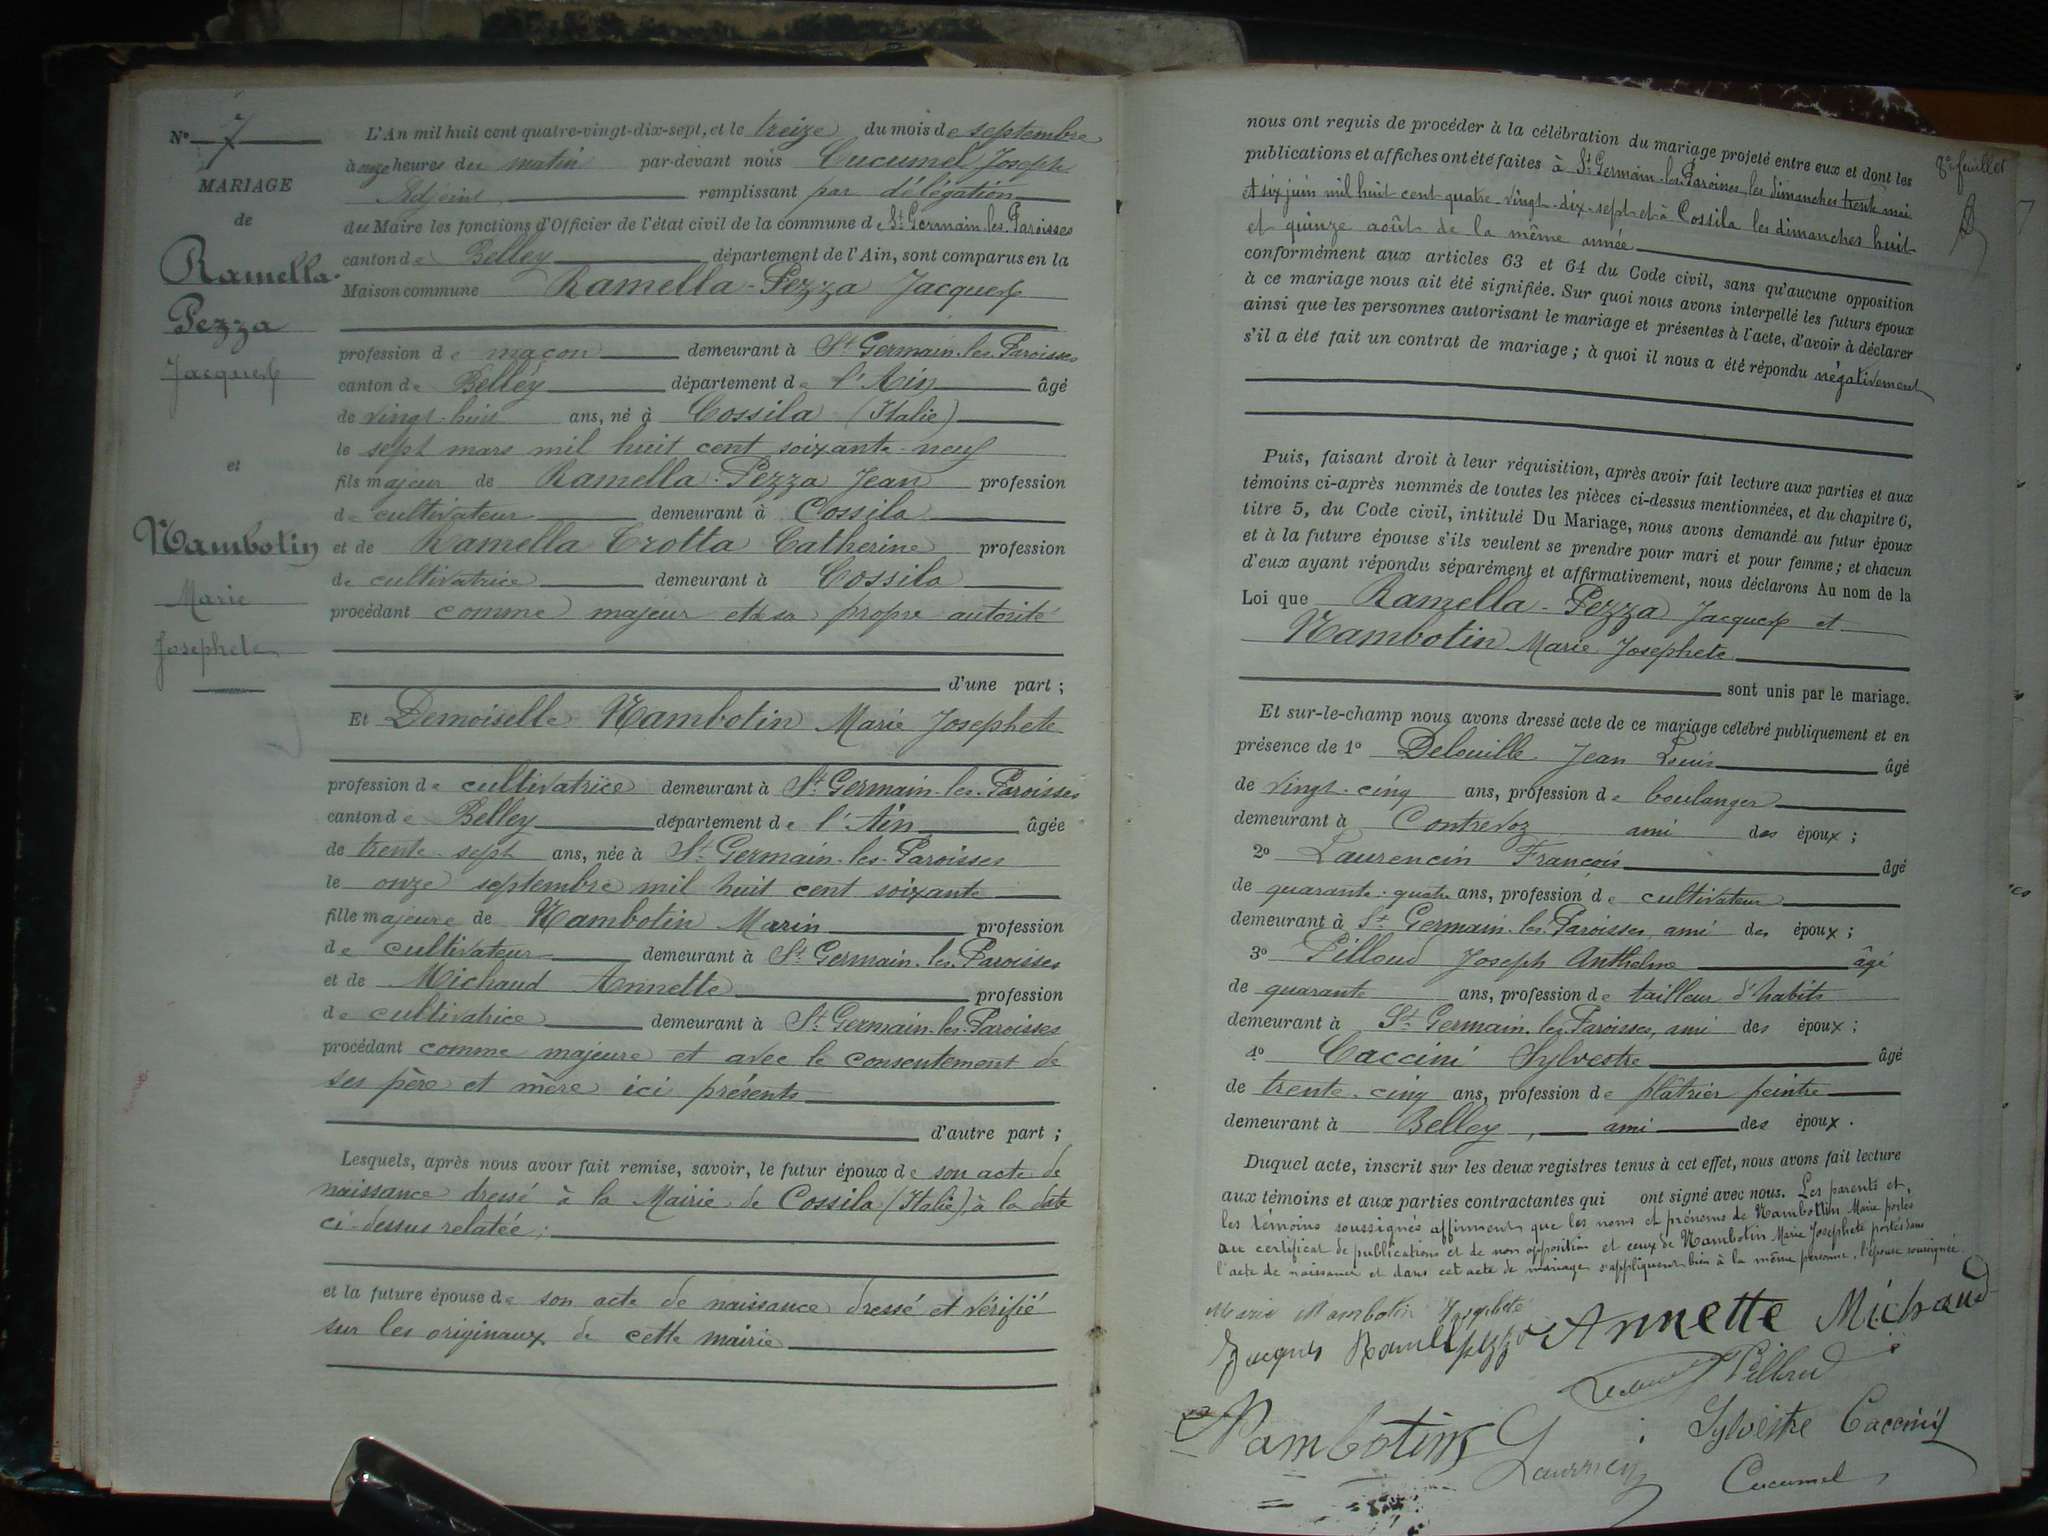 N° 7
MARIAGE
de
Ramella-
Pezza
Jacques
et
Nambotin
Marie
Josephete
L'An mil huit cent quatre-vingt-dix-sept, et le treize du mois de septembre
à onze heures du matin par-devant nous Cucumel Joseph
Adjoint remplissant par délégation
du Maire les fonctions d'Officier de l'état civil de la commune de St Germain-les-Paroisses
canton de Belley département de l'Ain, sont comparus en la
Maison commune Ramella-Pezza Jacques
profession de maçon demeurant à St Germain-les-Paroisses
canton de Belley département de l'Ain âgé
de vingt-huit ans, né à Cossila (Italie)
le sept mars mil huit cent soixante-neuf
fils majeur de Ramella-Pezza Jean profession
de cultivateur demeurant à Cossila
et de Ramella Trotta Catherine profession
de cultivatrice demeurant à Cossila
procédant comme majeur et de sa propre autorité
d'une part ;
Et Demoiselle Nambotin Marie Josephete
profession de cultivatrice demeurant à St Germain-les-Paroisses
canton de Belley département de l'Ain âgée
de trente-sept ans, née à St Germain-les-Paroisses
le onze septembre mil huit cent soixante
fille majeure de Nambotin Marin profession
de cultivateur demeurant à St Germain-les-Paroisses
et de Michaud Annette profession
de cultivatrice demeurant à St Germain-les-Paroisses
procédant comme majeure et avec le consentement de
ses père et mère ici présents
d'autre part ;
Lesquels, après nous avoir fait remise, savoir, le futur époux de son acte de
naissance dressé à la Mairie de Cossila (Italie) à la date
ci-dessus relatée ;
et la future épouse de son acte de naissance dressé et vérifié
sur les originaux de cette mairie
8e feuillet
nous ont requis de procéder à la célébration du mariage projeté entre eux et dont les
publications et affiches ont été faites à St Germain-les-Paroisses, les dimanches trente mai
et six juin mil huit cent quatre-vingt-dix-sept et à Cossila les dimanches huit
et quinze août de la même année
conformément aux articles 63 et 64 du Code civil, sans qu'aucune opposition
à ce mariage nous ait été signifiée. Sur quoi nous avons interpellé les futurs époux
ainsi que les personnes autorisant le mariage et présentes à l'acte, d'avoir à déclarer
s'il a été fait un contrat de mariage ; à quoi il nous a été répondu négativement
Puis, faisant droit à leur réquisition, après avoir fait lecture aux parties et aux
témoins ci-après nommés de toutes les pièces ci-dessus mentionnées, et du chapitre 6,
titre 5, du Code civil, intitulé Du Mariage, nous avons demandé au futur époux
et à la future épouse s'ils veulent se prendre pour mari et pour femme ; et chacun
d'eux ayant répondu séparément et affirmativement, nous déclarons Au nom de la
Loi que Ramella-Pezza Jacques et
Nambotin Marie Josephete
sont unis par le mariage.
Et sur-le-champ nous avons dressé acte de ce mariage célébré publiquement et en
présence de 1° Delouille Jean Louis âgé
de vingt-cinq ans, profession de boulanger
demeurant à Contrevoz ami des époux ;
2° Laurencin François âgé
de quarante-quatre ans, profession de cultivateur
demeurant à St Germain-les-Paroisses, ami des époux ;
3° Pilloud Joseph Anthelme âgé
de quarante ans, profession de tailleur d'habits
demeurant à St Germain-les-Paroisses, ami des époux ;
4° Caccini Sylvestre âgé
de trente-cinq ans, profession de plâtrier peintre
demeurant à Belley, ami des époux.
Duquel acte, inscrit sur les deux registres tenus à cet effet, nous avons fait lecture
aux témoins et aux parties contractantes qui ont signé avec nous. Les parents et
les témoins soussignés affirment que les noms et prénoms de Nambotin Marie portés
au certificat de publications et de non opposition et ceux de Nambotin Marie Josephete portés dans
l'acte de naissance et dans cet acte de mariage s'appliquent bien à la même personne, l'épouse soussignée.
Marie Nambotin Josephete
Jacques Ramella pezza Annette Michaud
Pilloud
Nambotin Laurencin Sylvestre Caccini
Cucumel